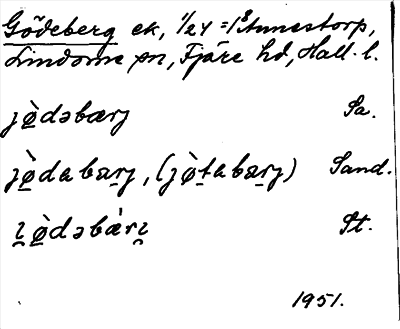 Gödeberg ek, 1/24 = 1 Stunestorp,
Lindome sn, Fjäre hd, Hall. l.
jø̠̀dəbærj Sa.
jø̠̀dabærj, (jø̠̀tabærj) Sand.
ɪ̯ø̠̀dəbæ̀rɪ̯ St.
1951.